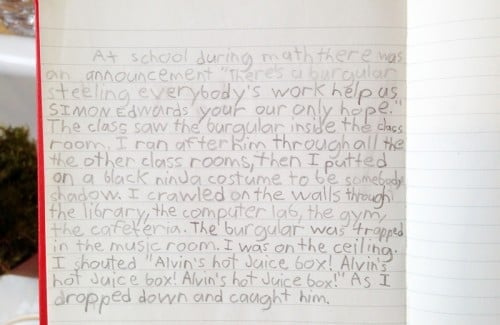 At school during math there was
an announcement "There's a burgular
steeling everybody's work help us
SIMON EDWARDS your our only hope."
The class saw the burgular inside the class
room. I ran after him through all the
the other class rooms, then I putted
on a black ninja costume to be somebody
shadow. I crawled on the walls through
the library, the computer lab, the gym,
the cafeteria. The burgular was trapped
in the music room. I was on the ceiling.
I shouted "Alvin's hot Juice box! Alvin's
hot Juice box! Alvin's hot Juice box!" As I
dropped down and caught him.